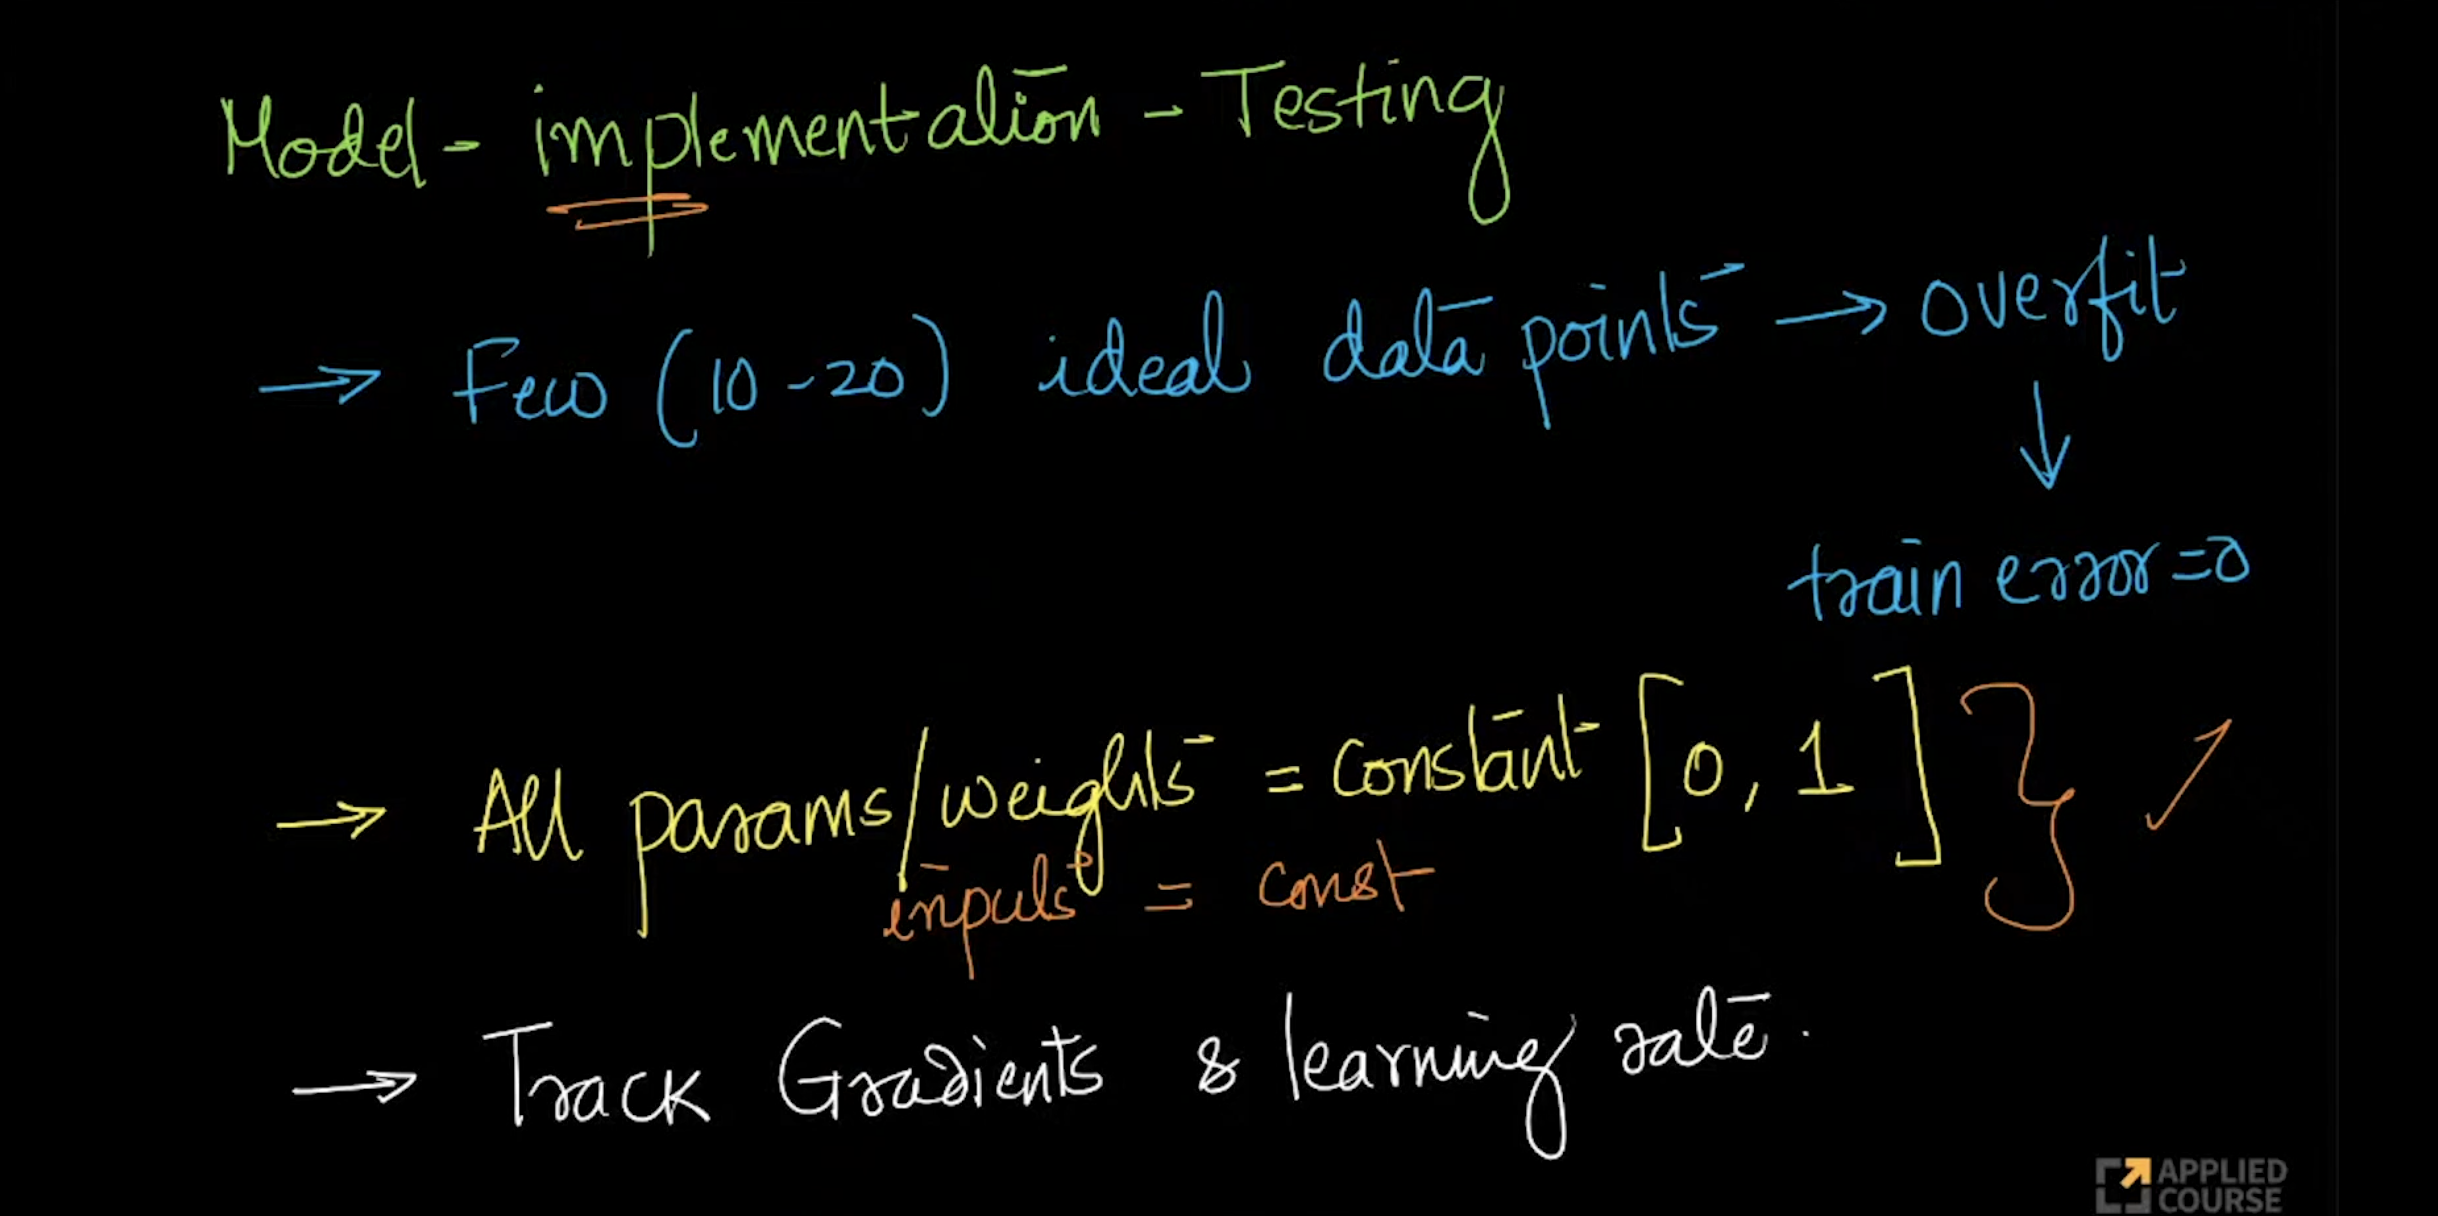 Model - implementation - Testing
→ Few (10-20) ideal data points → overfit
↓
train error = 0
→ All params/weights = constant [0, 1] } ✓
inputs = const
→ Track Gradients & learning rate.
APPLIED
COURSE